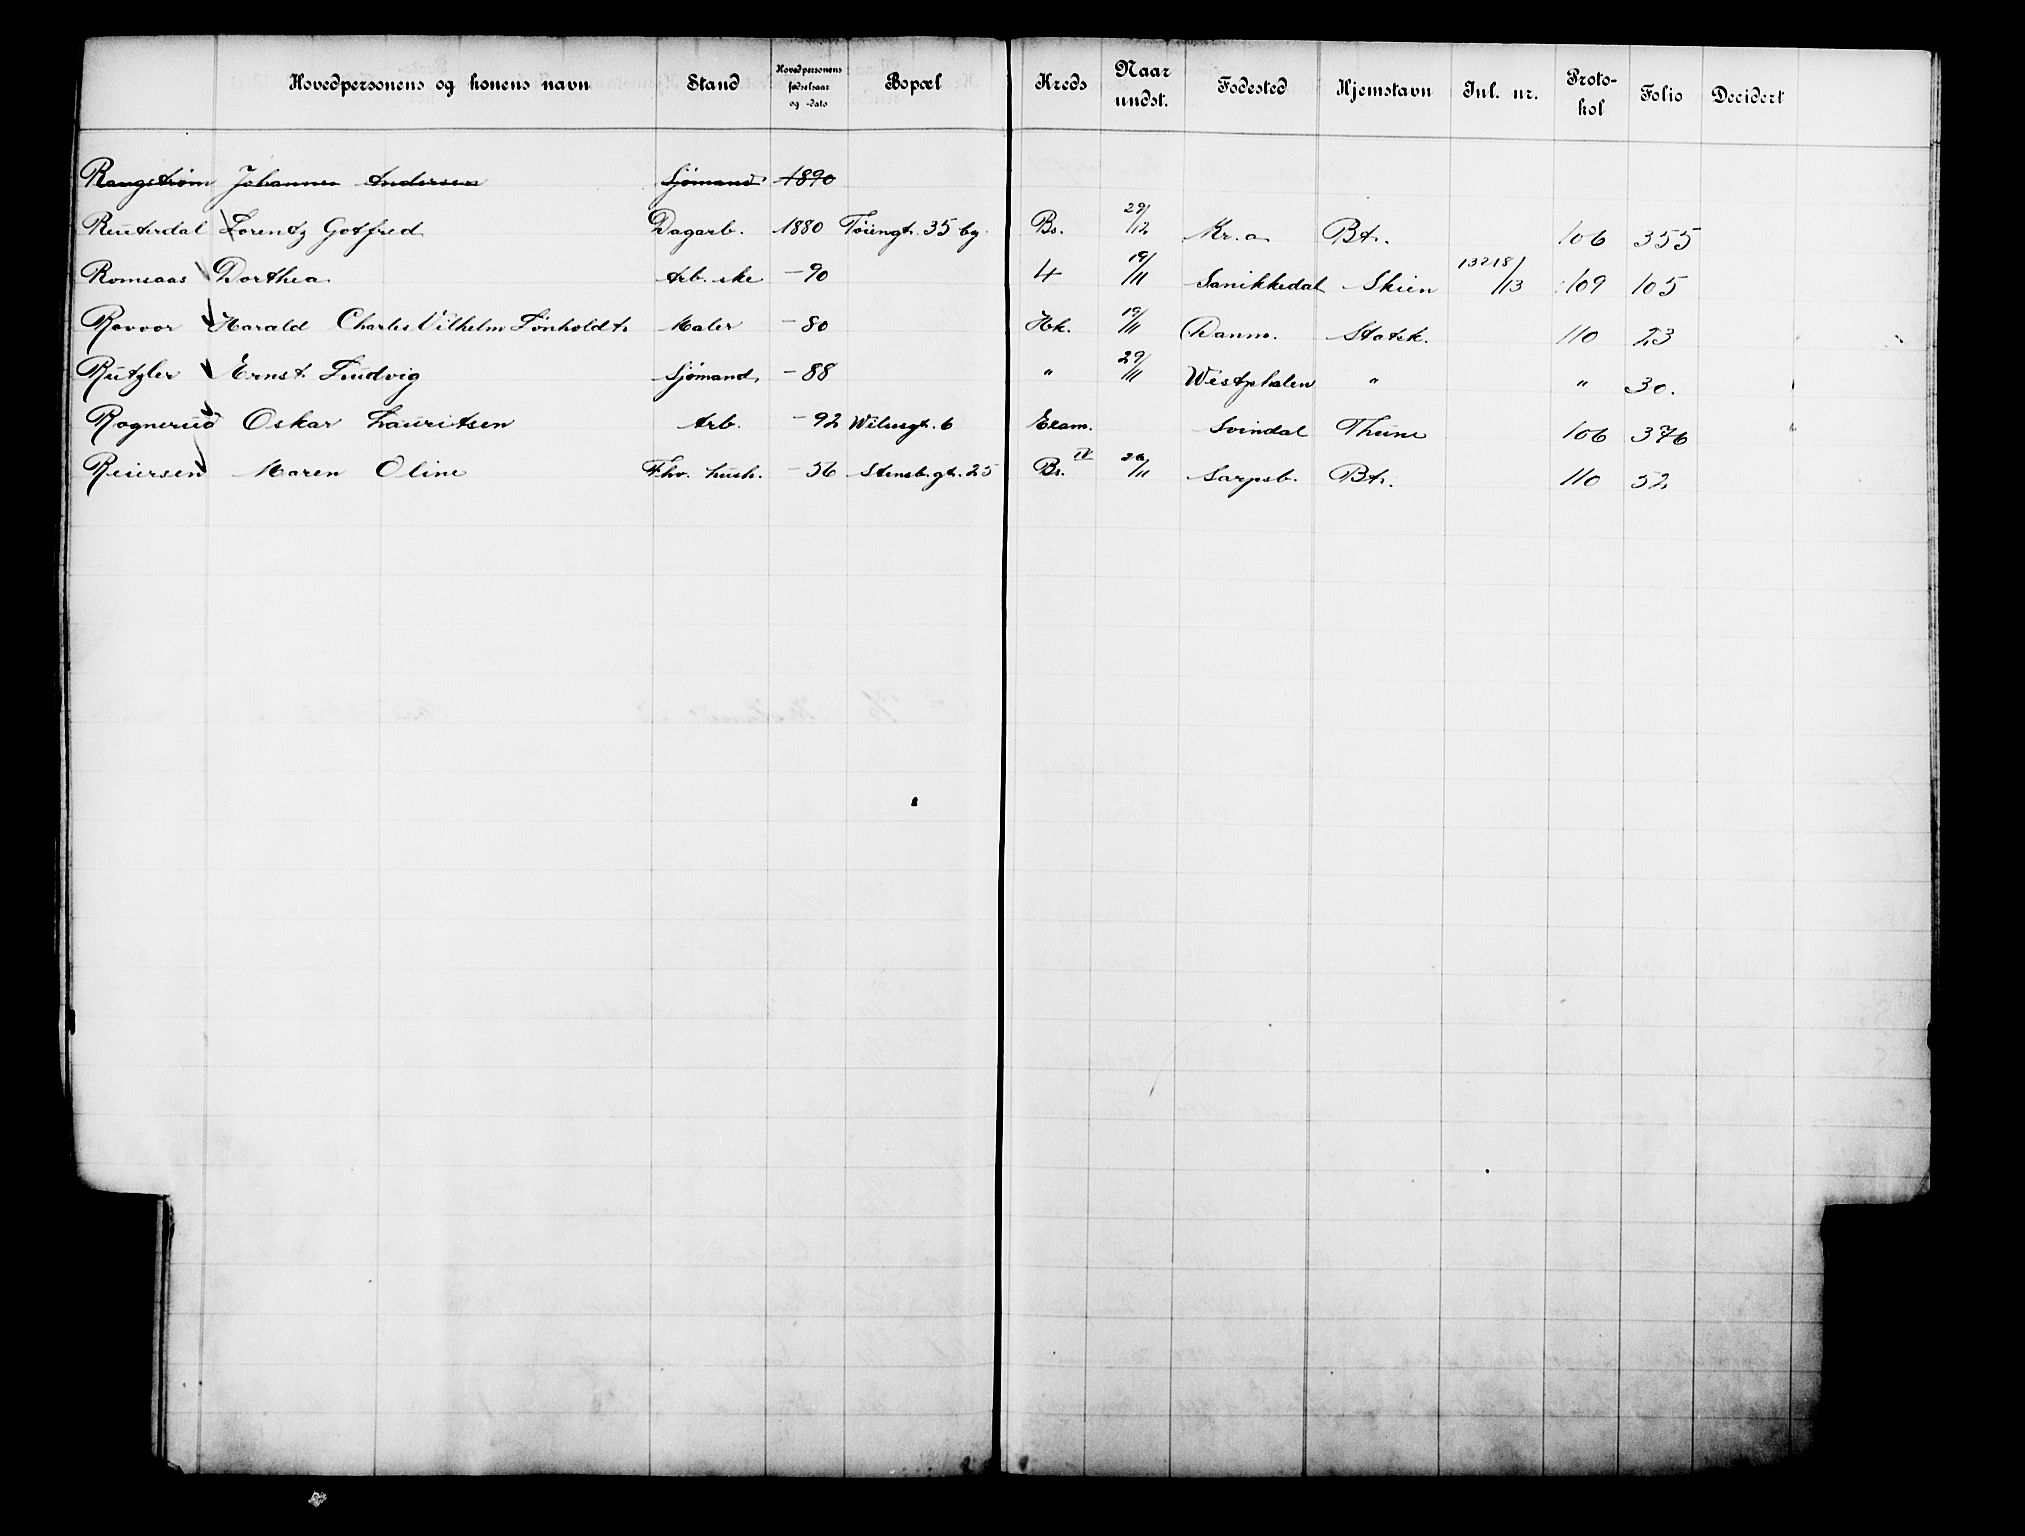 Hovedpersonens og konens navn Stand Hovedpersonens fødselsaar og -dato Bopæl Kreds Naar undst. Fødested Hjemstavn Inl. nr. Protokol Folio Decidert
Rangstrøm Johannes Andersen Sjömand 1890
Reuterdal Lorentz Gotfred Dagarb. 1880 Töiengt. 35 bg. Bs. 29/12 Kr.a Bt. 106 355
Romsaas Dorthea Arb. ske - 90 4 19/11 Sanikkedal Skien 13218/13 109 105
Rovoor Harald Charles Vilhelm Lönholdt Maler - 80 Hk. 19/11 Danm. Statsk. 110 23
Rutzler Ernst Ludvig Sjømand - 88 " 29/11 Westphalen " " 30.
Rognerud Oskar Lauritsen Arb. - 92 Wilsesgt. 6 Exam. Svindal Thune 106 376
Reiersen Maren Oline Fhv. hush. - 56 Stensb.gt. 25 Bs. IV 26/11 Sarpsb. Bt. 110 52